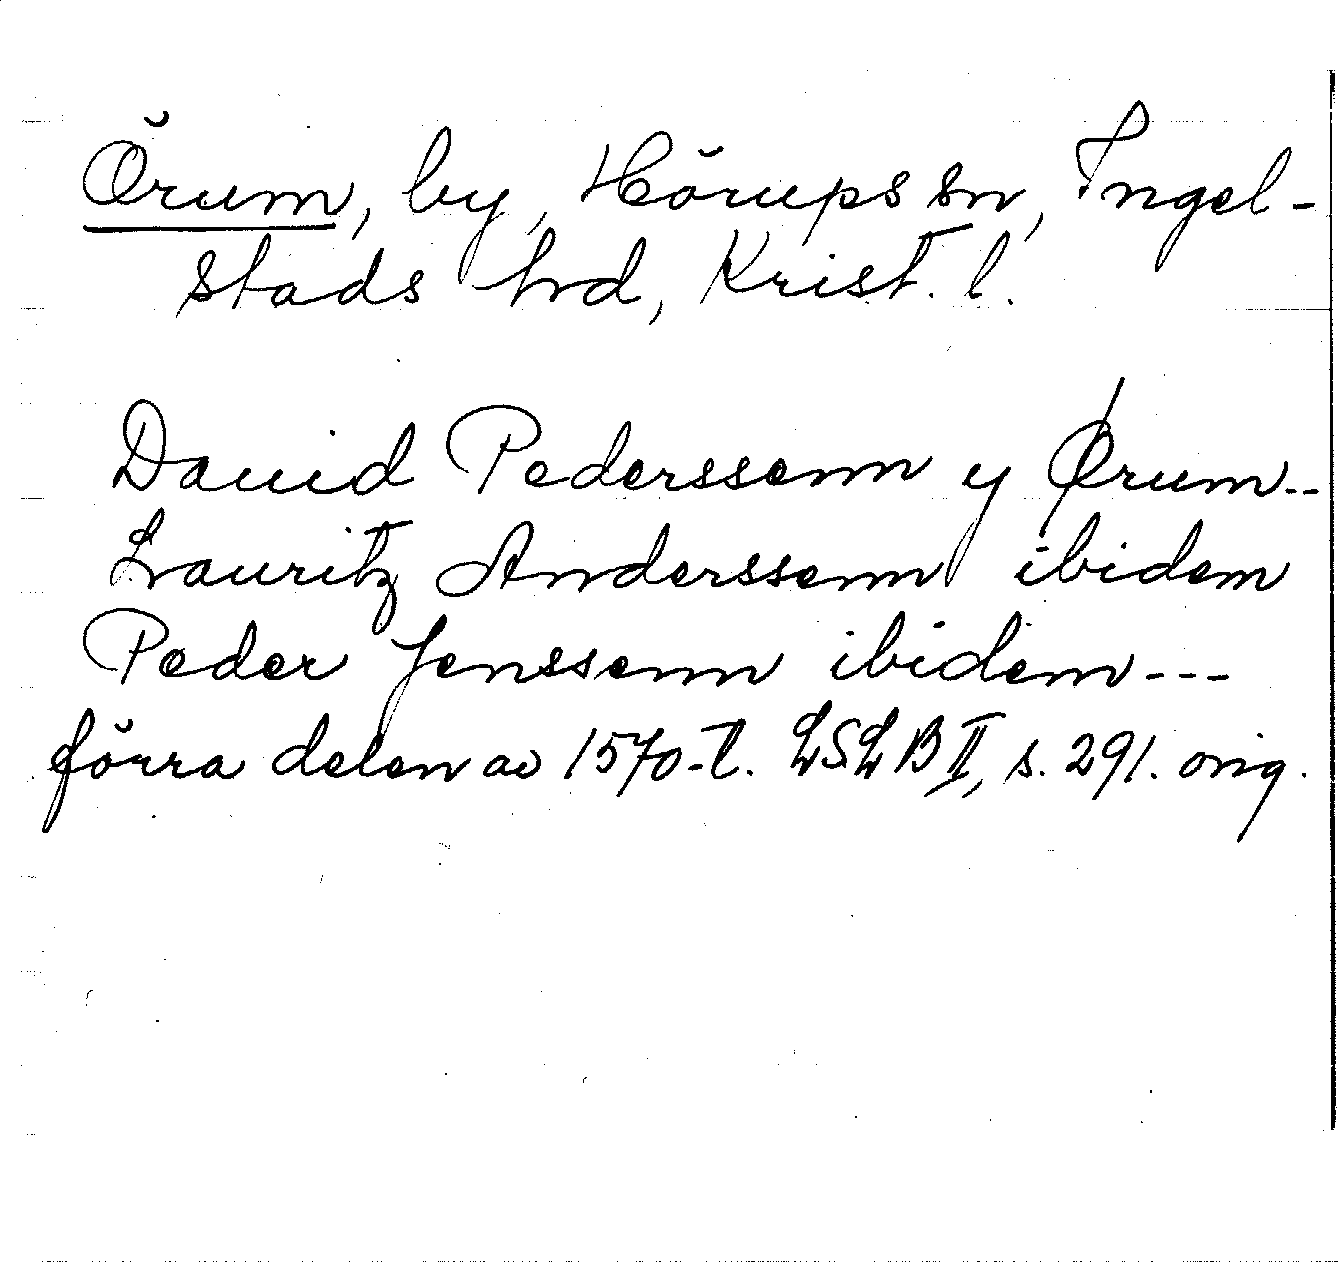 Örum, by, Hörups sn, Ingel-
stads hd, Krist. l.
Dauid Pederssenn y Ørum--
Lauritz Anderssenn ibidem
Peder Jenssenn ibidem---
förra delen av 1570-t. LSLB II, s. 291. orig.